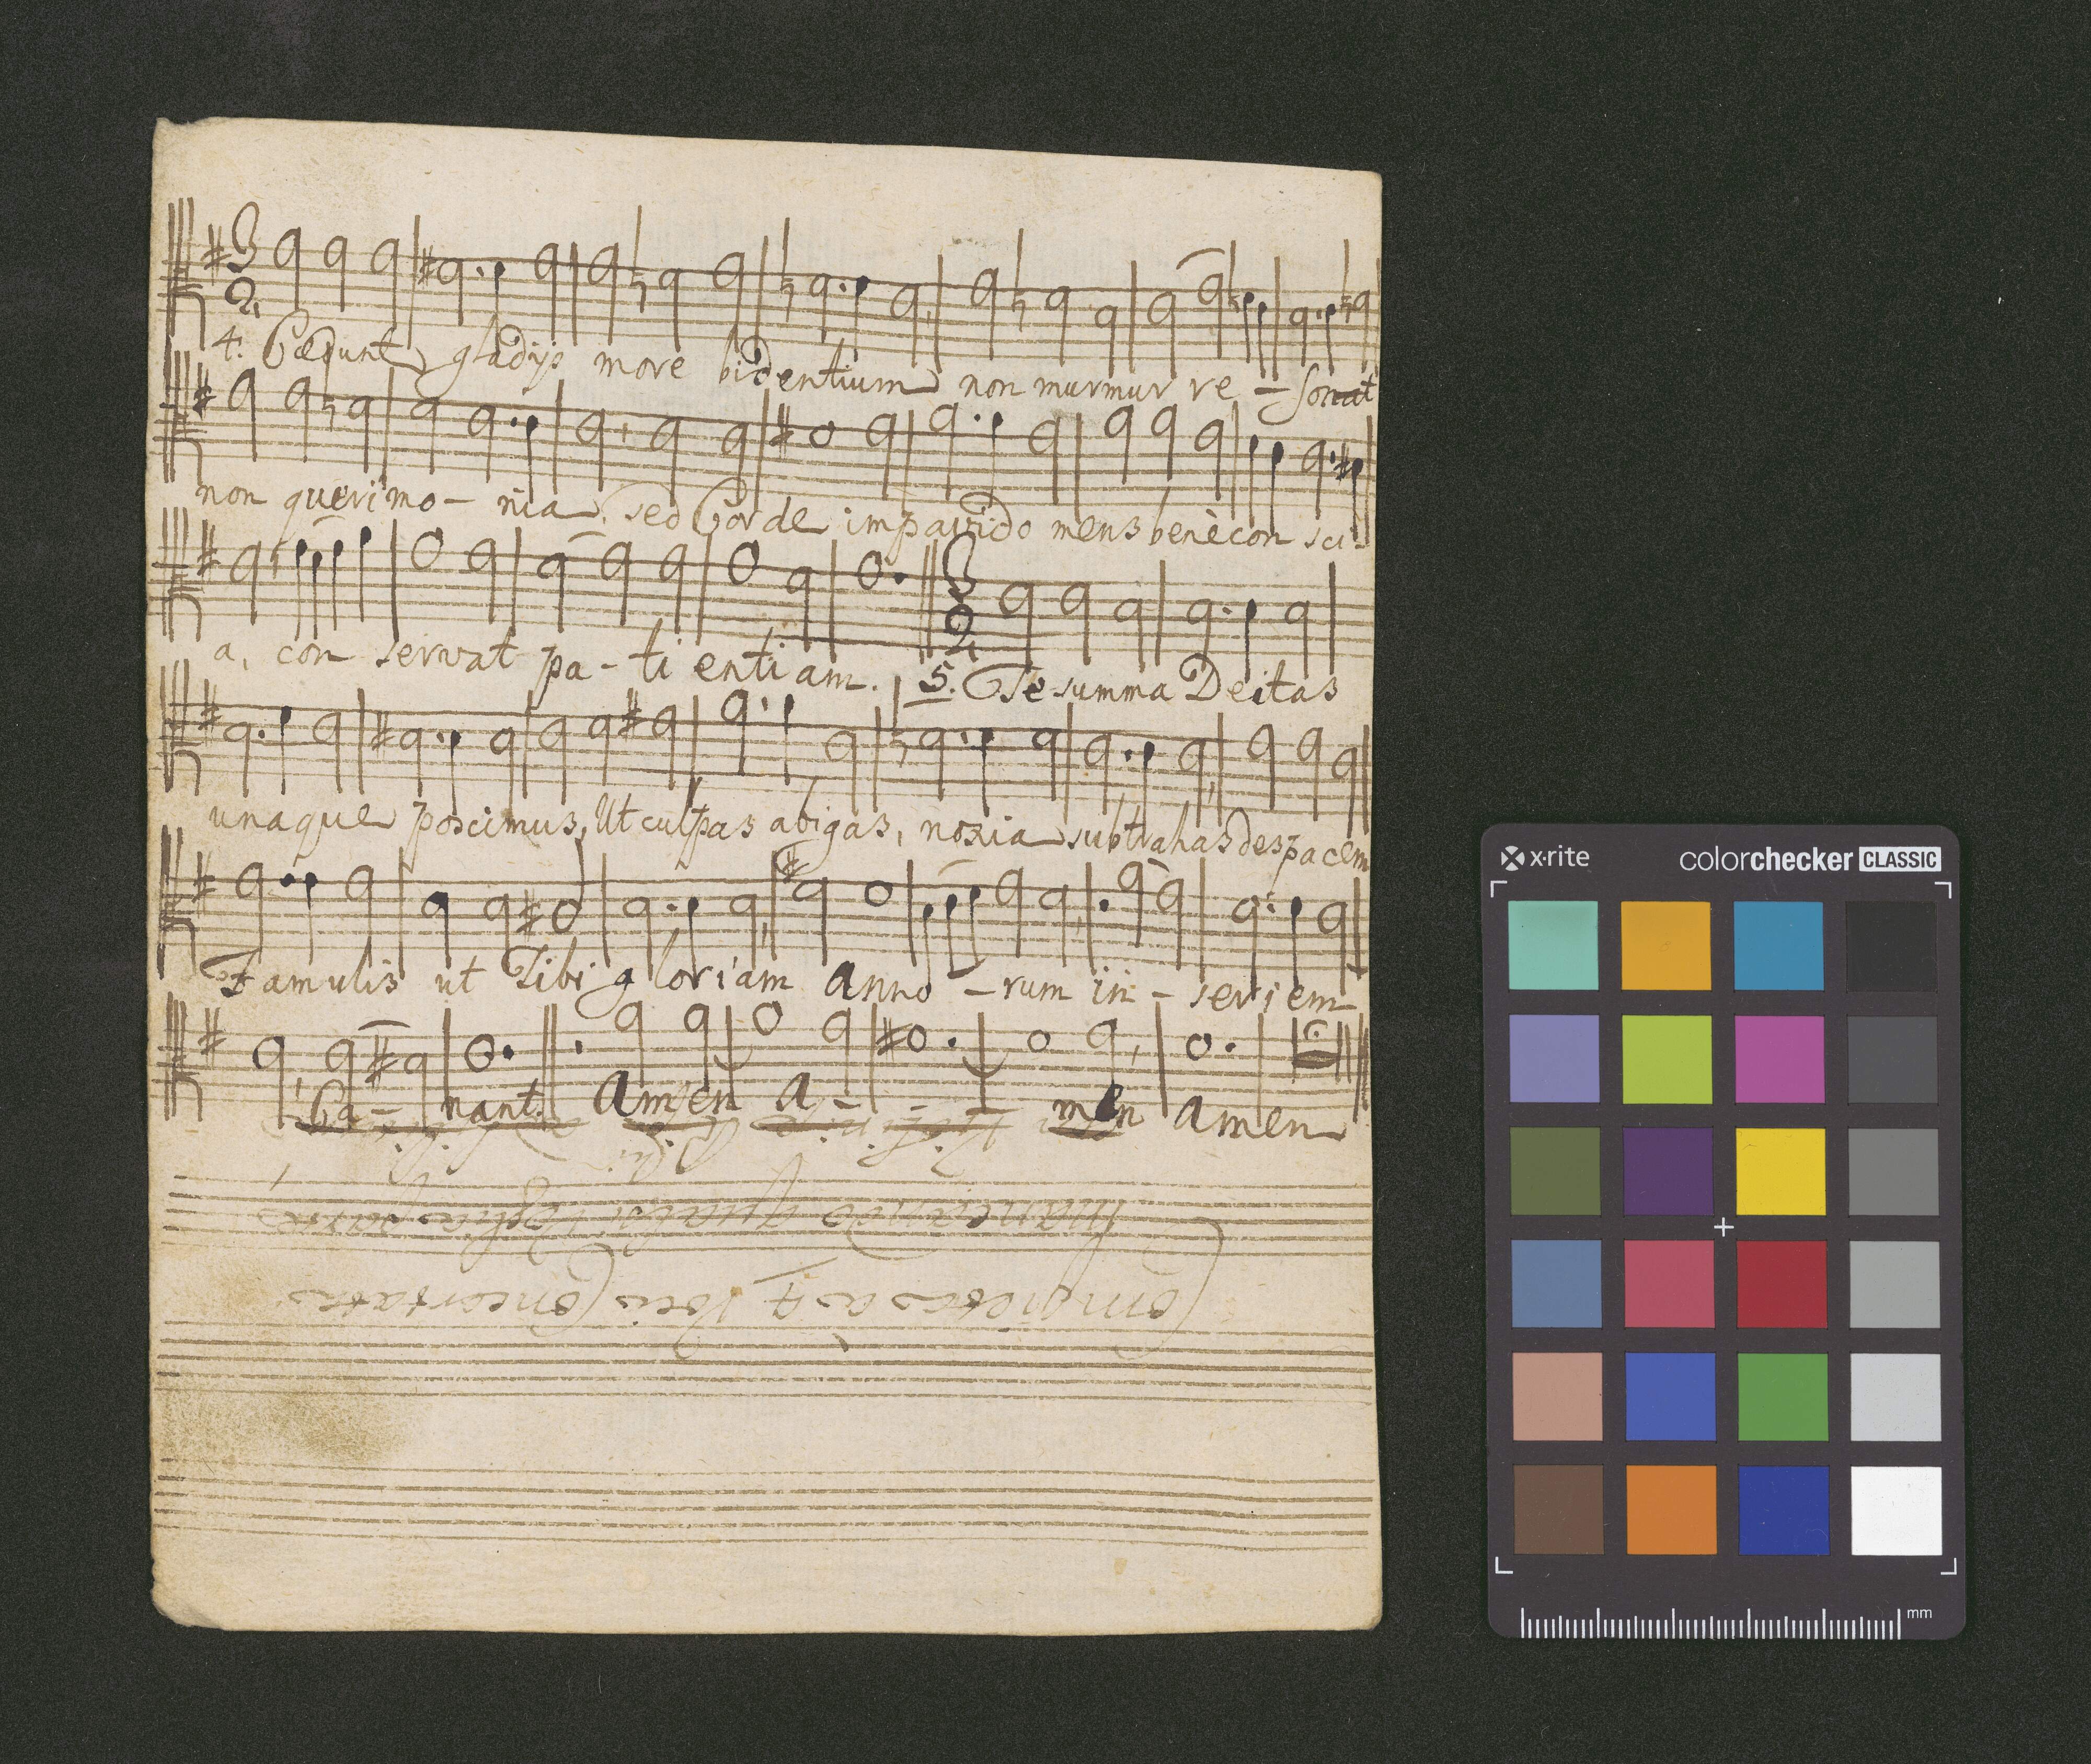 4. Cædunt gladijs more bidentium non murmur re - sonat
non querimo - nia, sed Corde impavido mens benè con sci-
a, con servat pa - ti enti am. 5. Te summa Deitas
unaque poscimus, Ut culpas abigas, noxia subtrahas des pacem
Famulis ut Tibi gloriam Anno - rum in - seriem
Ca - nant. Amen A - - men Amen
Compieta a 4 Voci Concertata
x-rite colorchecker CLASSIC
mm